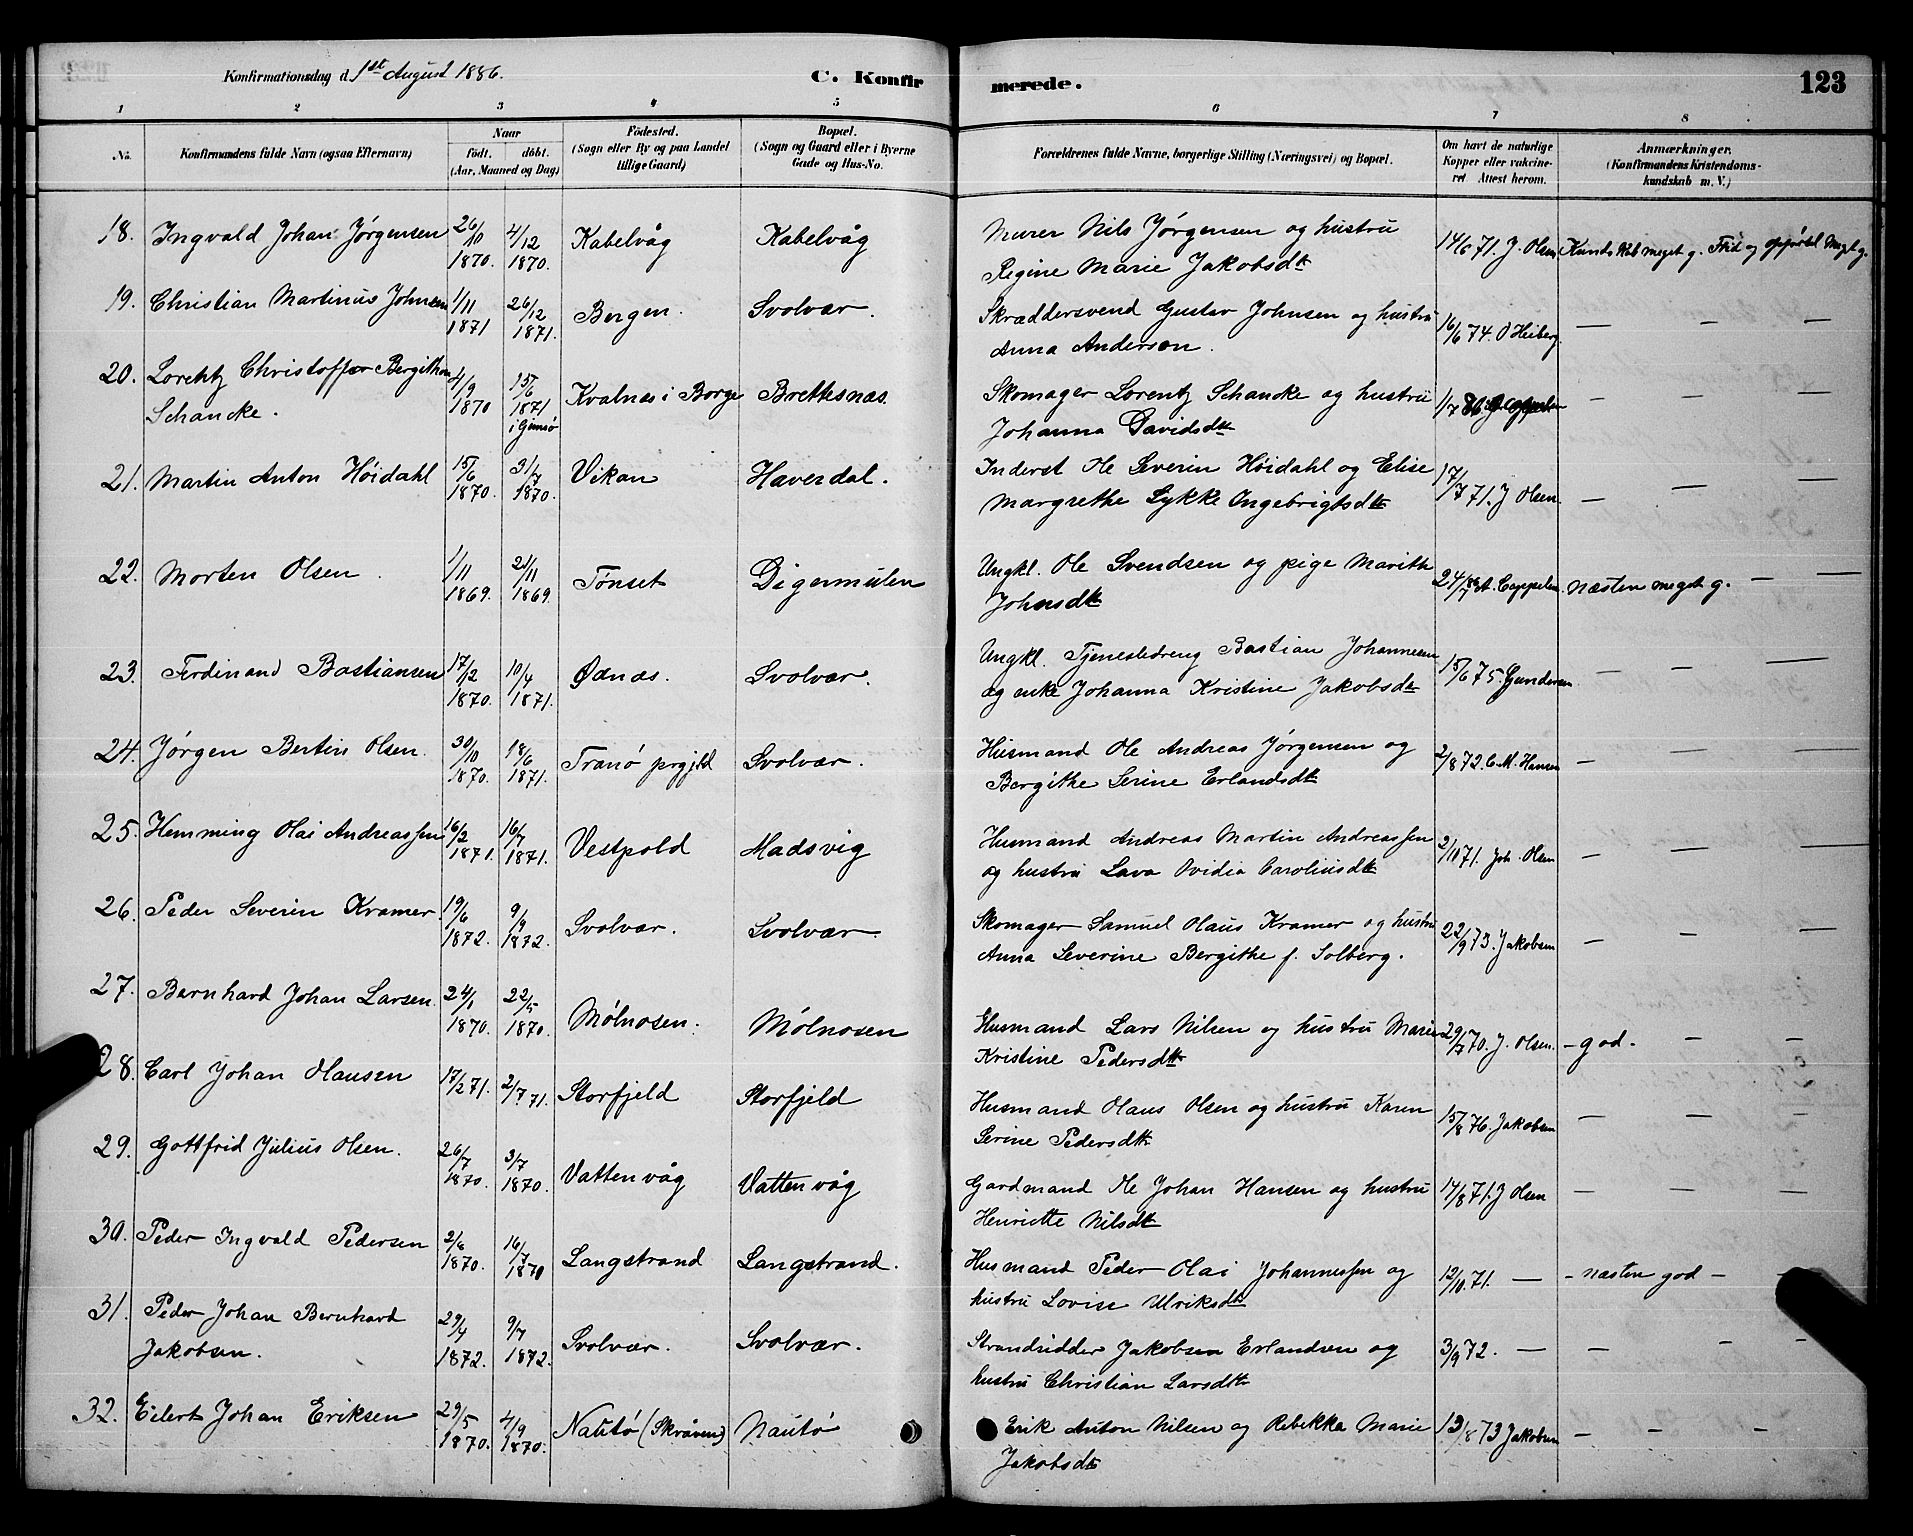 Konfirmationsdag d. 1st August 1886. C. Konfirmerede. 123
1 2 3 4 5 6 7 8
No. Konfirmandens fulde Navn (ogsaa Efternavn) Naar födt. döbt. (Aar, Maaned og Dag) Födested. (Sogn eller By og paa Landet tillige Gaard) Bopæl. (Sogn og Gaard eller i Byerne Gade og Hus-No. Forældrenes fulde Navne, borgerlige Stilling (Næringsvei) og Bopæl. Om havt de naturlige Kopper eller vakcineret Attest herom. Anmærkninger. (Konfirmandens Kristendomskundskab m. V.)
18. Ingvald Johan Jørgensen 26/10 1870. 4/12 1870. Kabelvåg Kabelvåg Murer Nils Jørgensen og hustru 14/6 71. J. Olsen Kundskab meget g. Flid og opførsel Meget g.
Regine Marie Jakobsdtr
19. Christian Martinus Johnsen 1/11 1871 26/12 1871. Bergen. Svolvær. Skræddersvend Gustav Johnsen og hustru 16/6 74. O Heiberg — — —
Anna Anderson.
20. Lorentz Christoffer Bergithon 4/9 1870 15/6 1871 i Gimsø Kvalnæs i Borge Brettesnæs. Skomager Lorentz Schancke og hustru 1/7 86 — — —
Schancke. Johanna Davidsdtr
21. Martin Anton Høidahl 15/6 1870. 31/7 1870. Vikan Haversdal. Inderst Ole Severin Høidahl og Elise 17/7 71. J Olsen — — —
Margrethe Lykke Ingebrigtsdtr
22. Morten Olsen. 1/11 1869. 21/11 1869. Tønset Digermulen Ungkl. Ole Svendsen og pige Marith 24/7 86 A. Cappelen Næsten meget g. — —
Johnsdtr
23. Ferdinand Bastiansen 17/12 1870. 10/4 1871. Ødnæs. Svolvær. Ungkl. Tjenestedreng Bastian Johannesen 15/6 75. Gundersen — — —
og enke Johanna Kristine Jakobsdtr
24. Jørgen Bertin Olsen. 30/10 1870. 18/6 1871. Tranø prgjld Svolvær. Husmand Ole Andreas Jørgensen og 2/8 72. C. M. Hansen — — —
Bergithe Serine Erlandsdtr
25. Hemming Olai Andreassen 16/2 1871. 16/7 1871. Vestpold Madsvig Husmand Andreas Martin Andreassen 2/10 71. Joh. Olsen — — —
og hustru Lava Ovidia Caroliusdtr
26. Peder Severin Kramer. 19/6 1872. 9/9 1872. Svolvær. Svolvær. Skomager Samuel Olaus Kramer og hustru 22/9 73. Jakobsen — — —
Anna Severine Bergithe f. Solberg.
27. Bernhard Johan Larsen. 24/1 1870. 22/5 1870. Mølnosen. Mølnosen Husmand Lars Nilsen og hustru Maria 29/7 70. J. Olsen. — god. — —
Kristine Pedersdtr
28. Carl Johan Olausen 17/2 71. 2/7 71. Storfjeld Storfjeld Husmand Olaus Olsen og hustru Karen 15/8 76. Jakobsen — — —
Serine Pedersdtr
29. Gottfrid Julius Olsen. 26/7 1870. 3/7 1870. Vattenvåg Vattenvåg Gardmand Ole Johan Hansen og hustru 17/8 71. J Olsen — — —
Henriette Nilsdtr
30. Peder Ingvald Pedersen 2/6 1870. 16/7 1870 Langstrand Langstrand. Husmand Peder Olai Johannessen og 12/10 71. — — næsten god — —
hustru Lovise Ulriksdtr
31. Peder Johan Bernhard 29/4 1872. 9/7 1872. Svolvær. Svolvær. Strandsidder Jakobsen Erlandsen og 3/9 72. — — — —
Jakobsen. hustru Christian Larsdtr
32. Eilert Johan Eriksen 29/5 1870. 4/9 1870. Nautø (Skråven) Nautø Erik Anton Nilsen og Rebekka Marie 13/8 73 Jakobsen — — —
Jakobsdtr